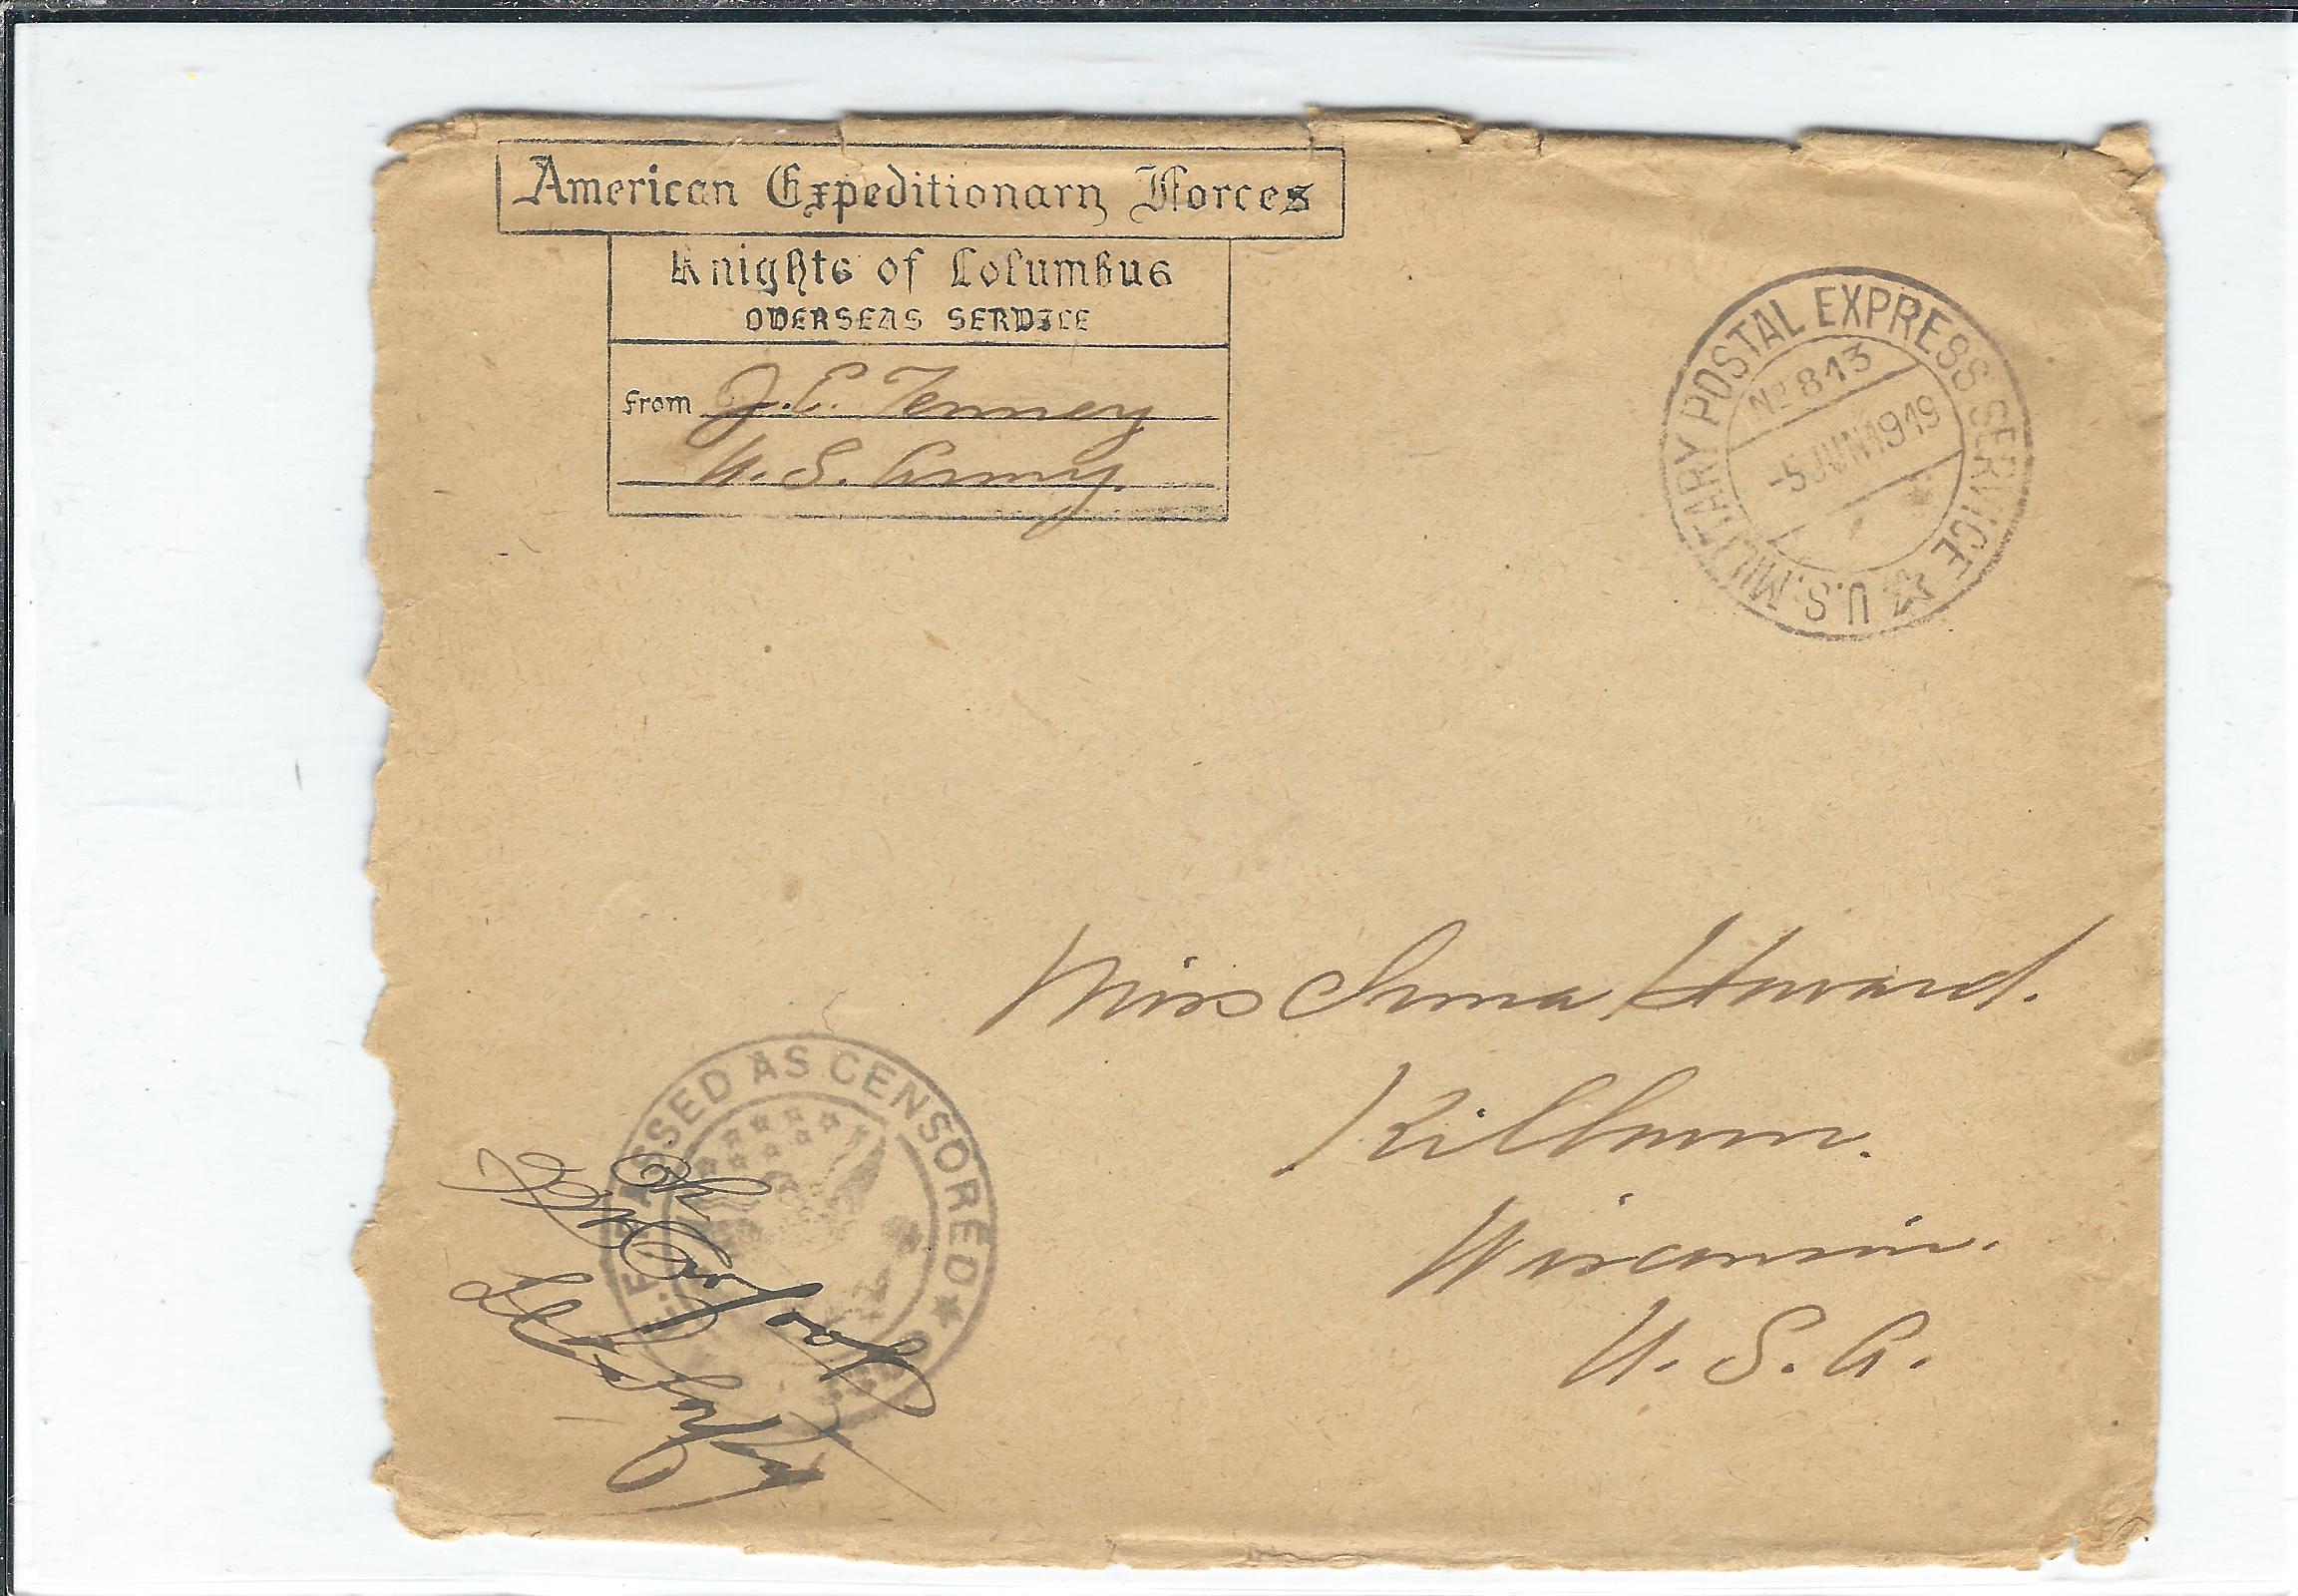 American Expeditionary Forces
Knights of Columbus
OVERSEAS SERVICE
From J. E. Tenney
U. S. Army.
U.S. MILITARY POSTAL EXPRESS SERVICE
No 813
-5 JUN 1919
Miss Irma Howard.
Kilbourn.
Wisconsin.
U. S. A.
PASSED AS CENSORED
OK